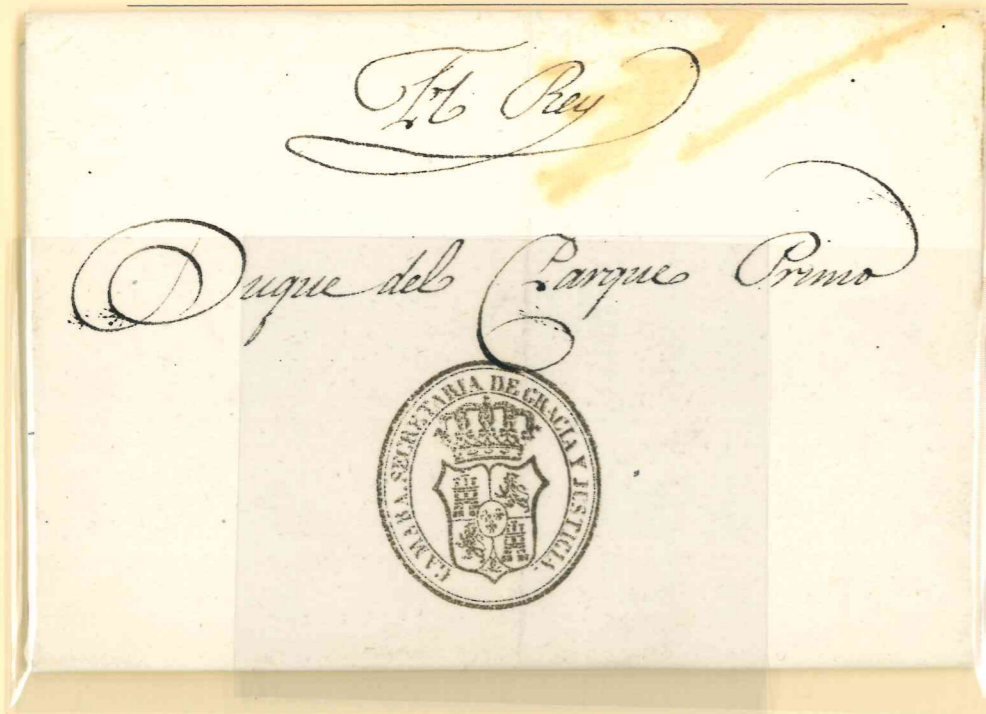 El Rey
Duque del Parque Primo
CAMARA. SECRETARIA DE GRACIA Y JUSTICIA.